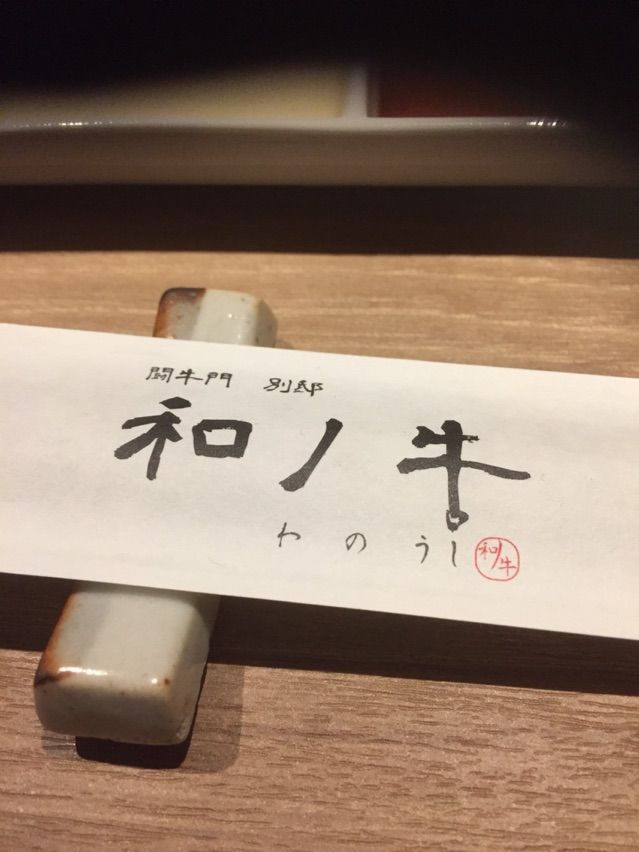 闘牛門 別邸
和ノ牛
わのうし
和ノ牛